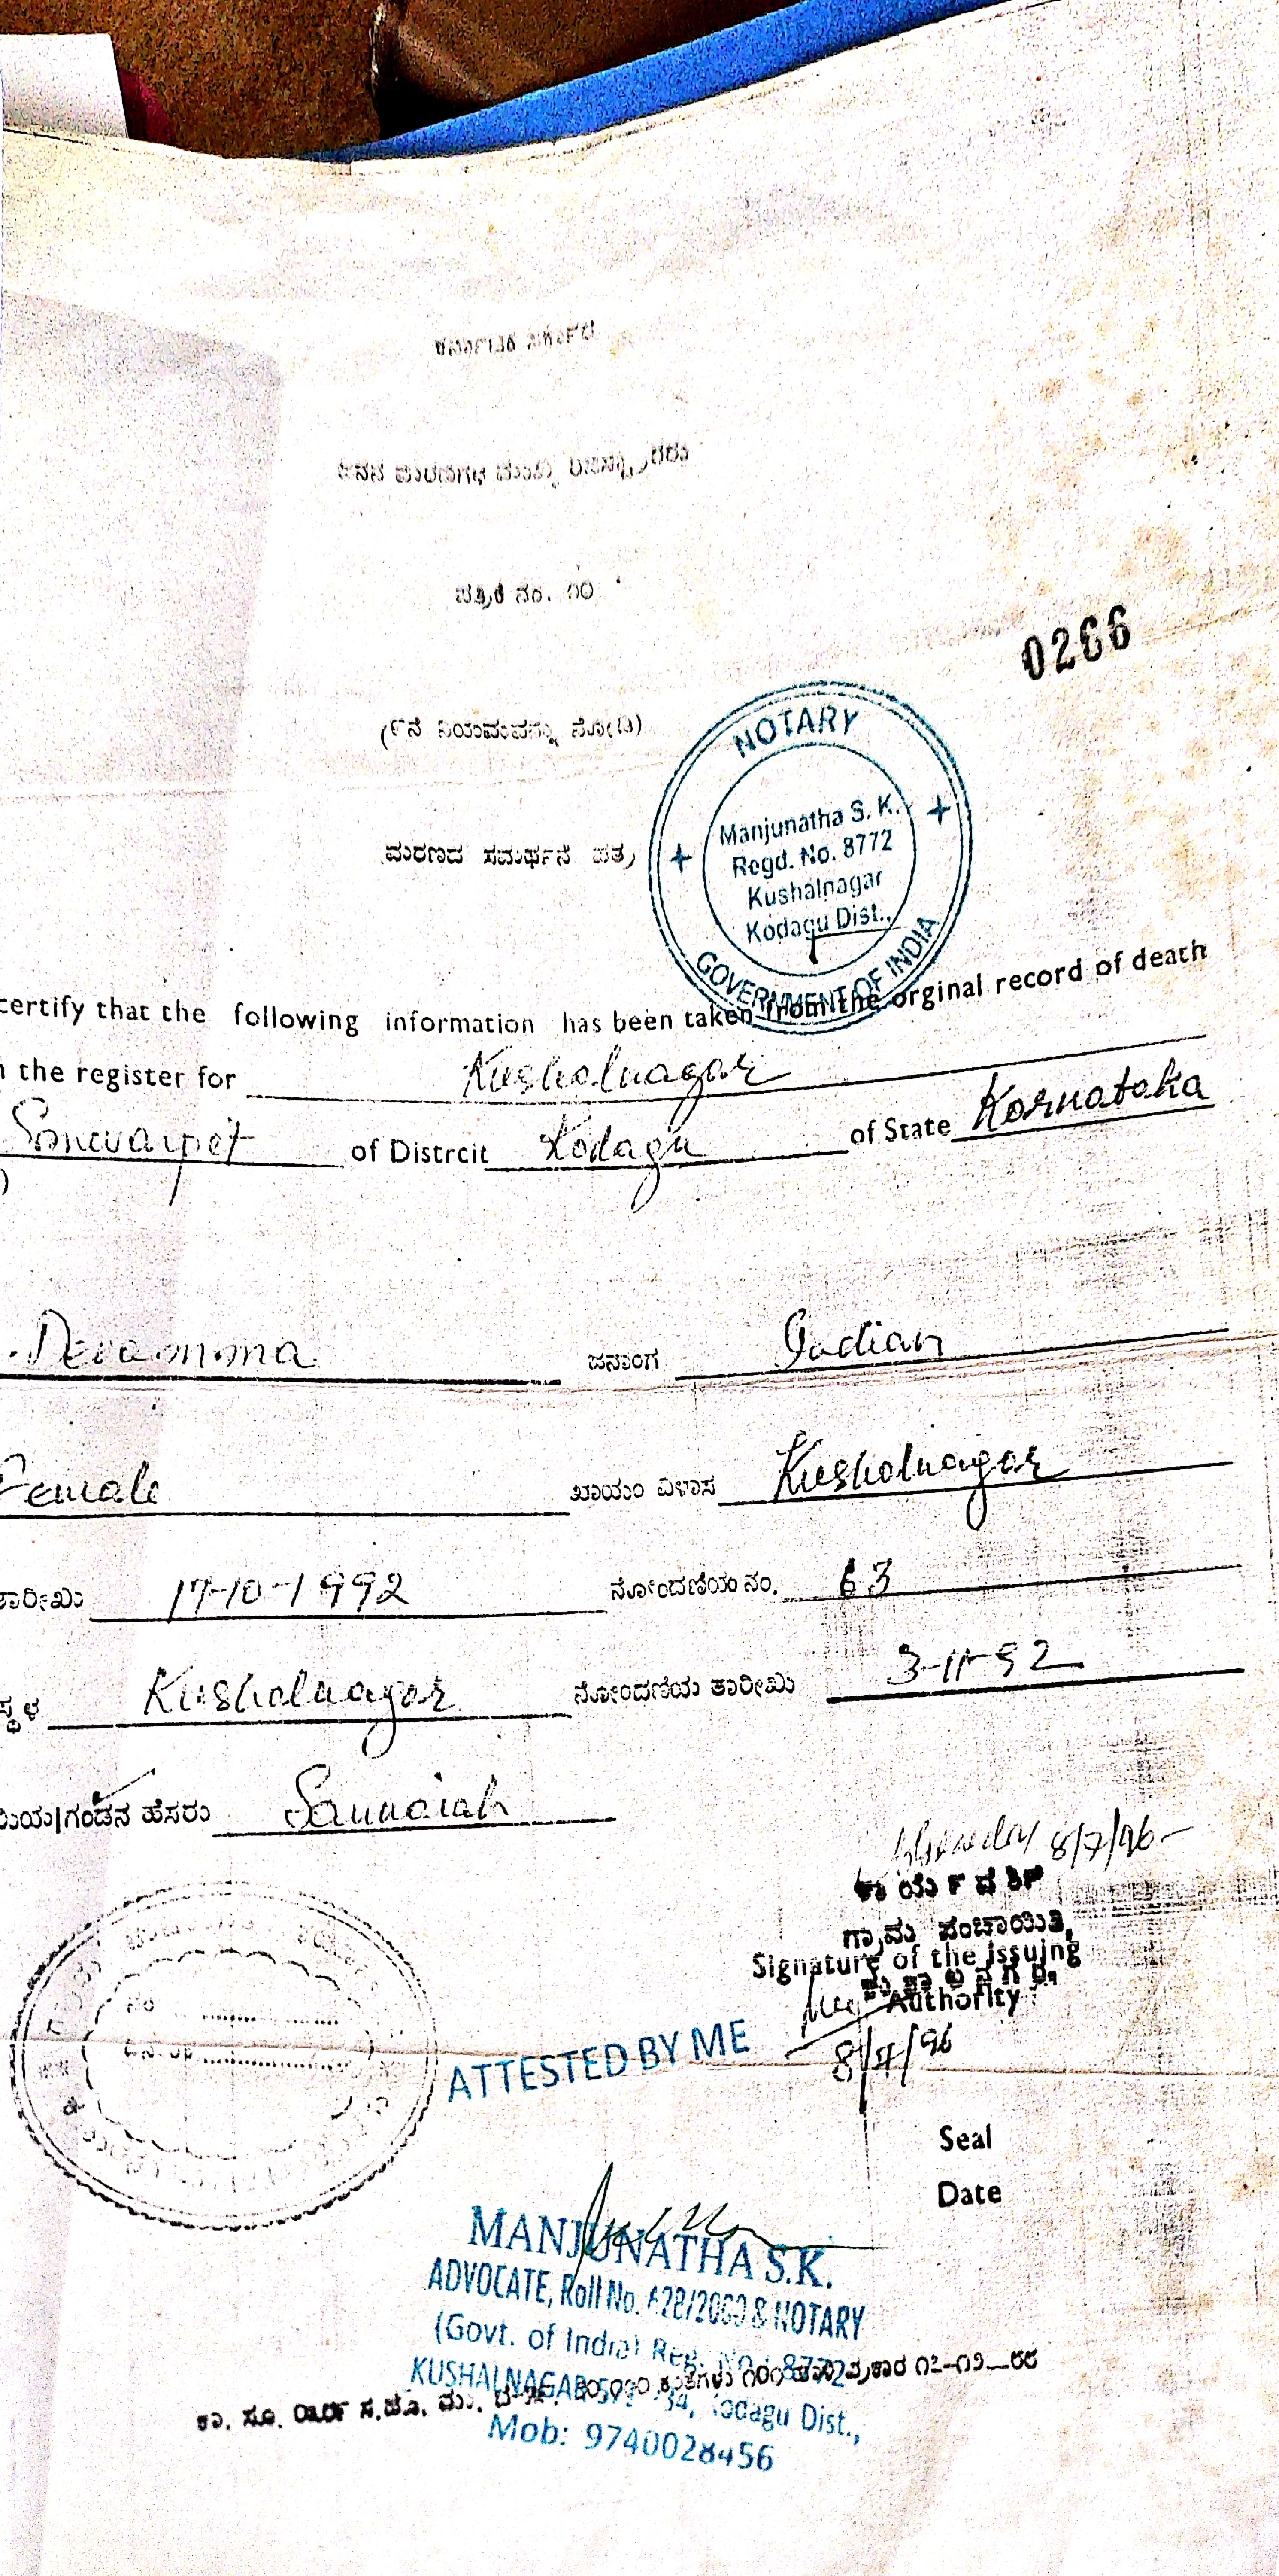 ಕರ್ನಾಟಕ ಸರ್ಕಾರ
ಜನನ ಮರಣಗಳ ಮುಖ್ಯ ರಿಜಿಸ್ಟ್ರಾರರು
ಪತ್ರಿಕೆ ನಂ. ೧೦
0266
(೯ನೆ ನಿಯಮವನ್ನು ನೋಡಿ)
NOTARY
Manjunatha S. K.
Regd. No. 8772
Kushalnagar
Kodagu Dist.,
GOVERNMENT OF INDIA
ಮರಣದ ಸಮರ್ಥನೆ ಪತ್ರ
certify that the following information has been taken from the orginal record of death
the register for Kushalnagar
Somwarpet of Distrcit Kodagu of State Karnataka
)
Devamma ಜನಾಂಗ Indian
Female ಖಾಯಂ ವಿಳಾಸ Kushalnagar
ತಾರೀಖು 17-10-1992 ನೋಂದಣಿಯ ನಂ. 63
ಸ್ಥಳ Kushalnagar ನೋಂದಣಿಯ ತಾರೀಖು 3-11-92
ಯ|ಗಂಡನ ಹೆಸರು Sannaiah
8/7/96
ಕಾರ್ಯದರ್ಶಿ
ಗ್ರಾಮ ಪಂಚಾಯಿತಿ,
Signature of the issuing
Authority
ಕುಶಾಲನಗರ.
8/7/96
ATTESTED BY ME
Seal
Date
MANJUNATHA S.K.
ADVOCATE, Roll No. 628/2000 & NOTARY
(Govt. of India) Reg. No. 8772
KUSHALNAGAR 571 234, Kodagu Dist.,
Mob: 9740028456